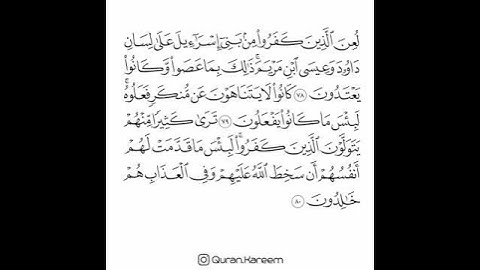 لُعِنَ ٱلَّذِينَ كَفَرُوا۟ مِنۢ بَنِىٓ إِسْرَٰٓءِيلَ عَلَىٰ لِسَانِ
دَاوُۥدَ وَعِيسَى ٱبْنِ مَرْيَمَ ۚ ذَٰلِكَ بِمَا عَصَوا۟ وَّكَانُوا۟
يَعْتَدُونَ ٧٨ كَانُوا۟ لَا يَتَنَاهَوْنَ عَن مُّنكَرٍ فَعَلُوهُ ۚ
لَبِئْسَ مَا كَانُوا۟ يَفْعَلُونَ ٧٩ تَرَىٰ كَثِيرًا مِّنْهُمْ
يَتَوَلَّوْنَ ٱلَّذِينَ كَفَرُوا۟ ۚ لَبِئْسَ مَا قَدَّمَتْ لَهُمْ
أَنفُسُهُمْ أَن سَخِطَ ٱللَّهُ عَلَيْهِمْ وَفِى ٱلْعَذَابِ هُمْ
خَٰلِدُونَ ٨٠
Quran.Kareem